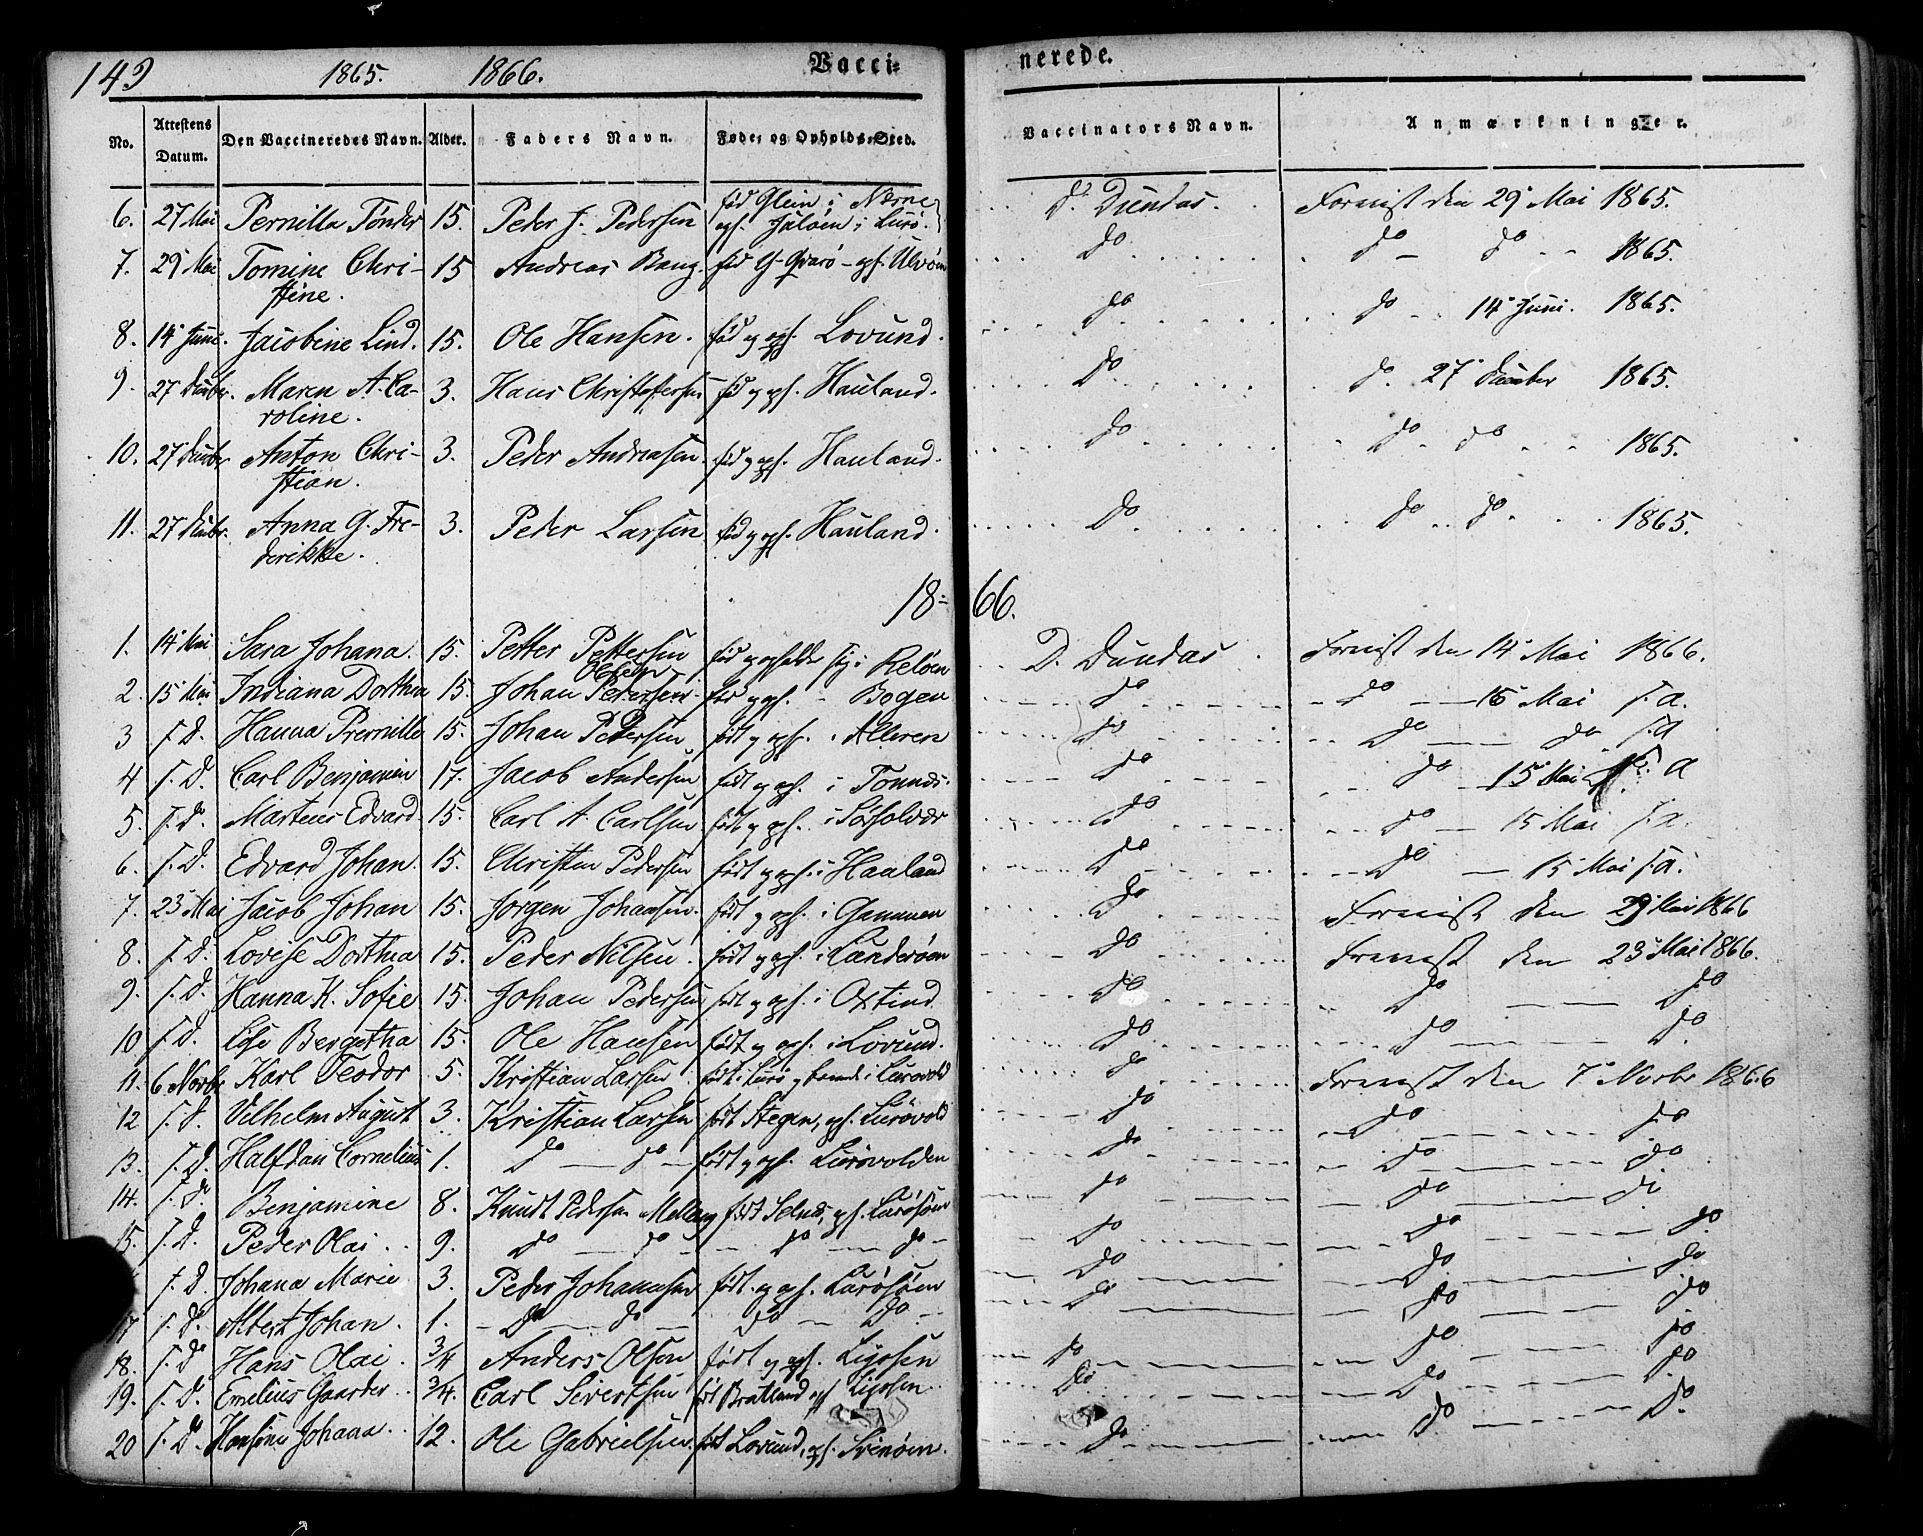 149 1865. 1866. Vacci= nerede.
No. Attestens Datum. Den Vaccineredes Navn. Alder. Faders Navn. Føde- og Opholds-Sted. Vaccinators Navn. Anmærkninger.
6. 27 Mai Pernilla Tønder 15. Peder J. Pedersen født Glein i Næsne oph. i Lurø. D. Dundas. Fornist den 29 Mai 1865.
7. 29 Mai Tomine Chri- 15 Andreas Bang. Do Do - Do - - 1865.
stine.
8. 14 Juni. Jacobine Lind. 15. Ole Hansen. fød og oph. Lovund. Do Do - 14 Juni. 1865.
9. 27 Decbr. Maren A. Ca- 3. Hans Christoffersen fød og oph. Hauland. Do do. 27 December 1865.
roline.
10. 27 Decbr Anton Chri- 3. Peder Andreasen fød og oph. Hauland. Do Do. Do - - 1865.
stian.
11. 27 Decbr. Anna G. Fre- 3. Peder Larsen fød og oph. Hauland. Do Do Do 1865.
derikke.
18- 66.
1. 14 Mai Sara Johana. 15. Petter Pettersen fød og opholder sig i Reløen D. Dundas Fornist den 14 Mai 1866.
Olsen
2. 15 Mai Indiana Dorthea 15. Johan Pedersen. fød og oph. - Bogen Do Do - 15 Mai s. a.
3 s. D. Hanna Pernille 15. Johan Pedersen født og oph. i Alleren Do Do do s. a
4 s. D. Carl Benjamin 17. Jacob Andersen født og oph. i Tonnes. Do Do 15 Mai s. a
5. s. D. Martens Edvard 15. Carl A. Carlsen født og oph. i Sørsolvær Do Do - 15 Mai s. a.
6. s. D. Edvard Johan. 15. Christen Pedersen født og oph. i Hauland Do Do - 15 Mai s. a.
7. 23 Mai Jacob Johan 15. Jørgen Johansen. født og oph. i Gammen Do Fornist den 23 Mai 1866
8. s. D. Lovise Dorthea 15. Peder Nilsen. født og oph. i Landerøen Do Fornist den 23 Mai 1866.
9. s. D. Hanna K. Sofie 15. Johan Pedersen født og oph. i Oxtind Do Do Do
10 s. D. Else Bergitha 15. Ole Hansen født og oph. i Lovund. Do Do Do
11. 6 Novbr Karl Teodor 5. Kristian Larsen født i Lurø og boende i Lurøvold Do Fornist den 7 Novbr 1866
12 s. D. Vilhelm August 3. Kristian Larsen født Stegen, oph. Lurøvold Do Do Do
13. s. D. Halfdan Cornelius 1. Do - do - født og oph. Lurøvolden Do Do Do
14. s. D Benjamine 8. Knudt Pedersen født Selnes, oph. Lurøsøen Do Do Do
15. s. D. Peder Olai 9. Do - Do - do - do - Do Do Do
s. D. Johana Marie 3. Peder Johannsen født og oph. Lurøsøen Do Do Do
17 s. D. Albert Johan. 1. Do - do - do - Do - Do Do Do
18. s. D Hans Olai 3/4 Anders Olsen født og oph. Ligosen Do Do Do
19. s. D. Emelius Gaarder 3/4. Carl Sivertsen født Bratland, oph Ligosen. Do Do Do
20 s. D. Hansine Johana 12. Ole Gabrielsen. født Lovund, oph. Svinøen. Do Do Do